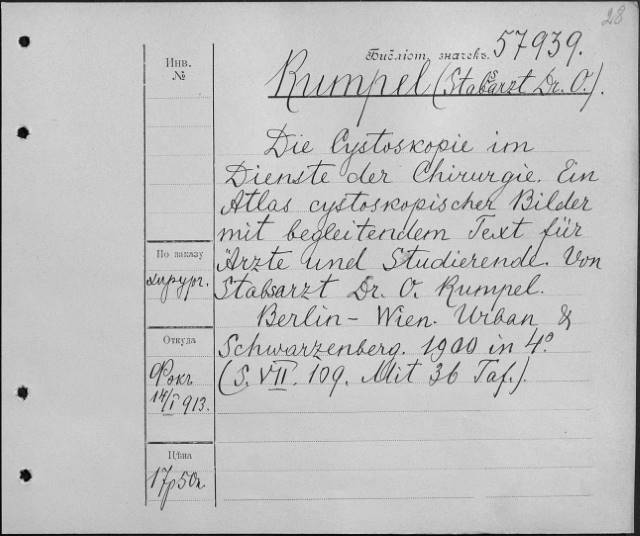 28
Библіот. значекъ. 57939.
Rumpel (Stabsarzt Dr. O.).
Инв.
№
Die Cystoskopie im
Dienste der Chirurgie. Ein
Atlas cystoskopischer Bilder
mit begleitendem Text für
Ärzte und Studierende. Von
Stabsarzt Dr. O. Rumpel.
Berlin - Wien. Urban &
Schwarzenberg. 1900 in 4°
(S. VII. 109. Mit 36 Taf.).
По заказу
хирург.
Откуда
Фокъ
14/I 913.
Цѣна
17р50к